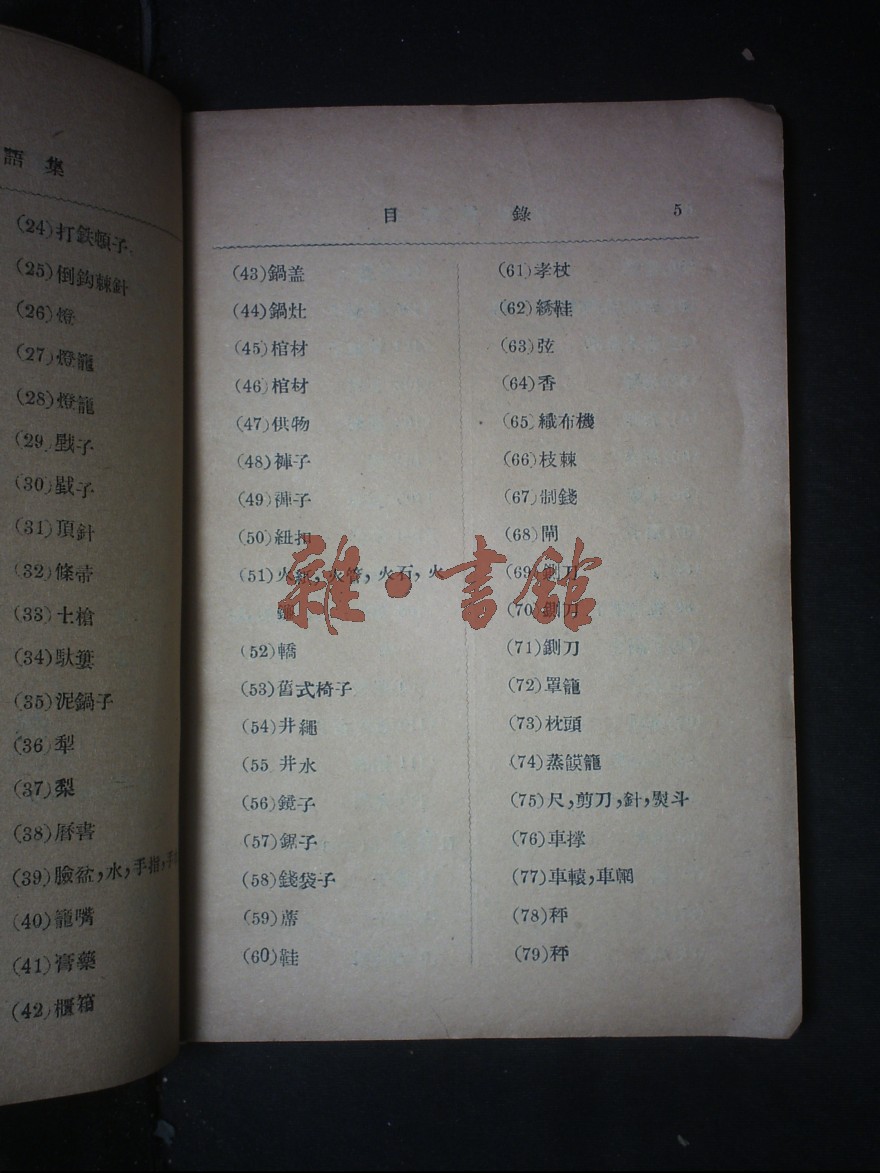 語 集
(24)打鉄頓子
(25)倒鈎棘針
(26)燈
(27)燈籠
(28)燈籠
(29)戥子
(30)戥子
(31)頂針
(32)條帚
(33)土槍
(34)馱簍
(35)泥鍋子
(36)犁
(37)犁
(38)曆書
(39)臉盆，水，手指，手
(40)籠嘴
(41)膏藥
(42)櫃箱
目 錄 5
(43)鍋盖
(44)鍋灶
(45)棺材
(46)棺材
(47)供物
(48)褲子
(49)褲子
(50)紐扣
(51)火紙，火管，火石，火
(52)轎
(53)舊式椅子
(54)井繩
(55)井水
(56)鏡子
(57)鋸子
(58)錢袋子
(59)蓆
(60)鞋
(61)孝杖
(62)綉鞋
(63)弦
(64)香
(65)織布機
(66)枝棘
(67)制錢
(68)閘
(69)鍘刀
(70)鍘刀
(71)鍘刀
(72)罩籠
(73)枕頭
(74)蒸饃籠
(75)尺，剪刀，針，熨斗
(76)車撑
(77)車轅，車輞
(78)秤
(79)秤
雜·書館